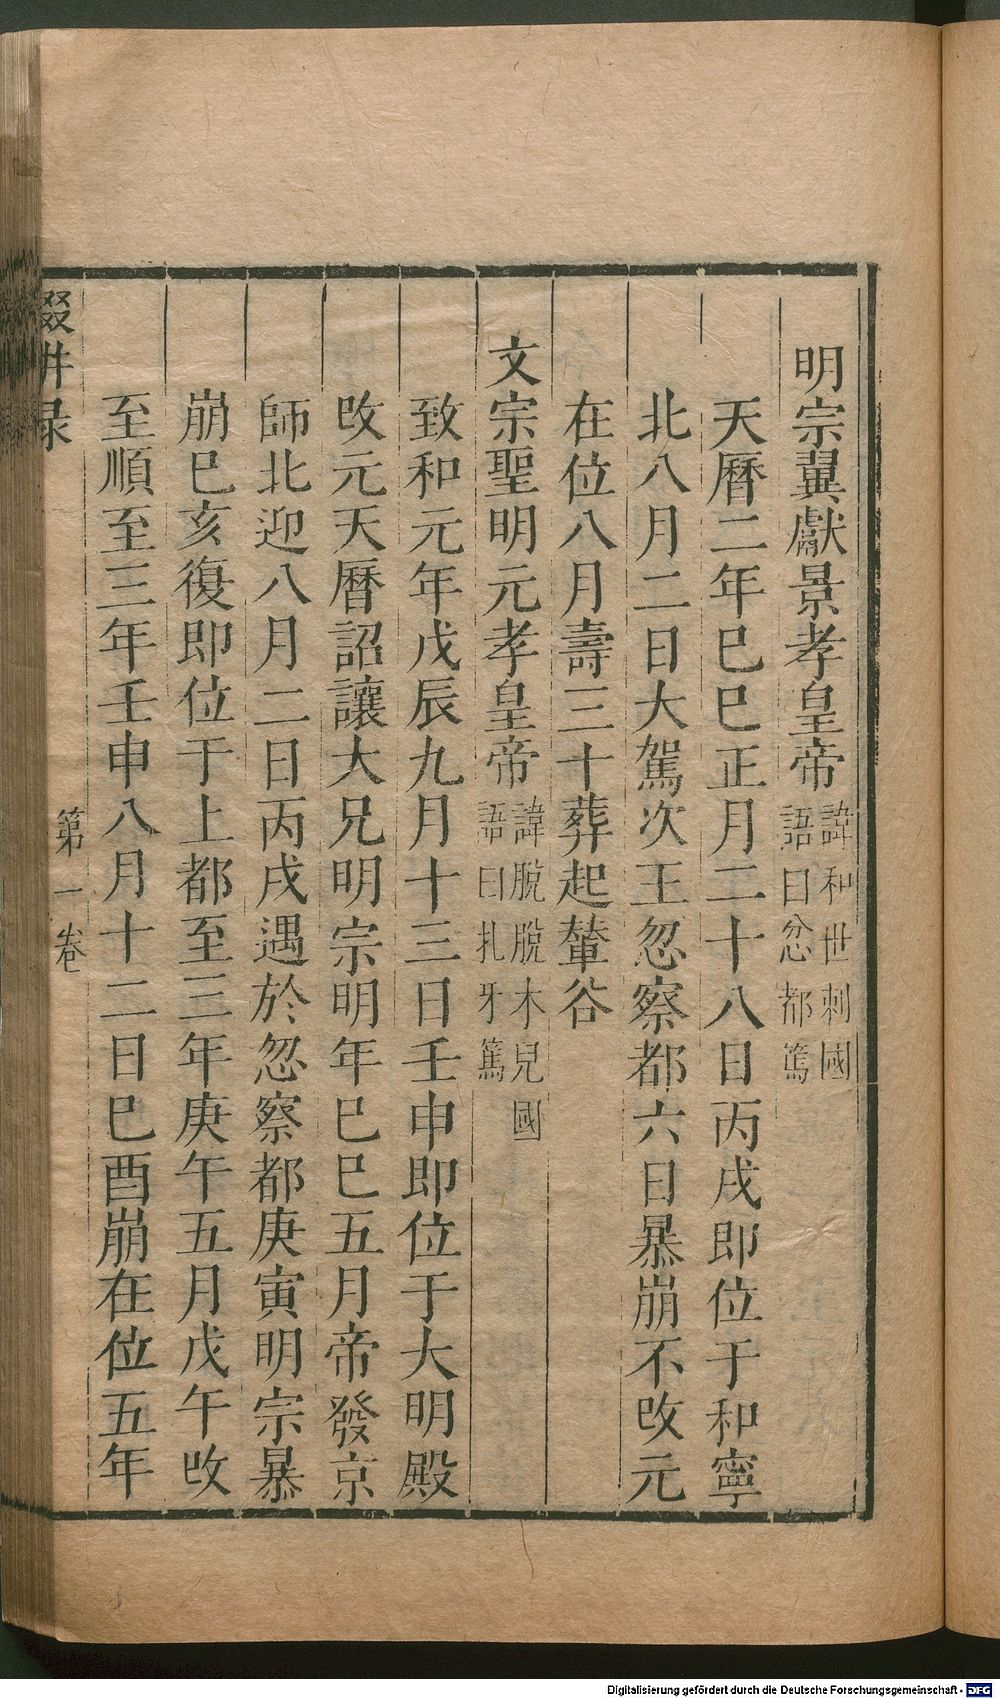 明宗翼獻景孝皇帝諱和世㻋國語曰忽都篤
天曆二年巳巳正月二十八日丙戌即位于和寧
北八月二日大駕次王忽察都六日暴崩不改元
在位八月壽三十葬起輦谷
文宗聖明元孝皇帝諱脫脫木兒國語曰扎牙篤
致和元年戊辰九月十三日壬申即位于大明殿
改元天曆詔讓大兄明宗明年巳巳五月帝發京
師北迎八月二日丙戌遇於忽察都庚寅明宗暴
崩巳亥復即位于上都至三年庚午五月戊午改
至順至三年壬申八月十二日巳酉崩在位五年
輟耕录 第一卷
Digitalisierung gefördert durch die Deutsche Forschungsgemeinschaft - DFG